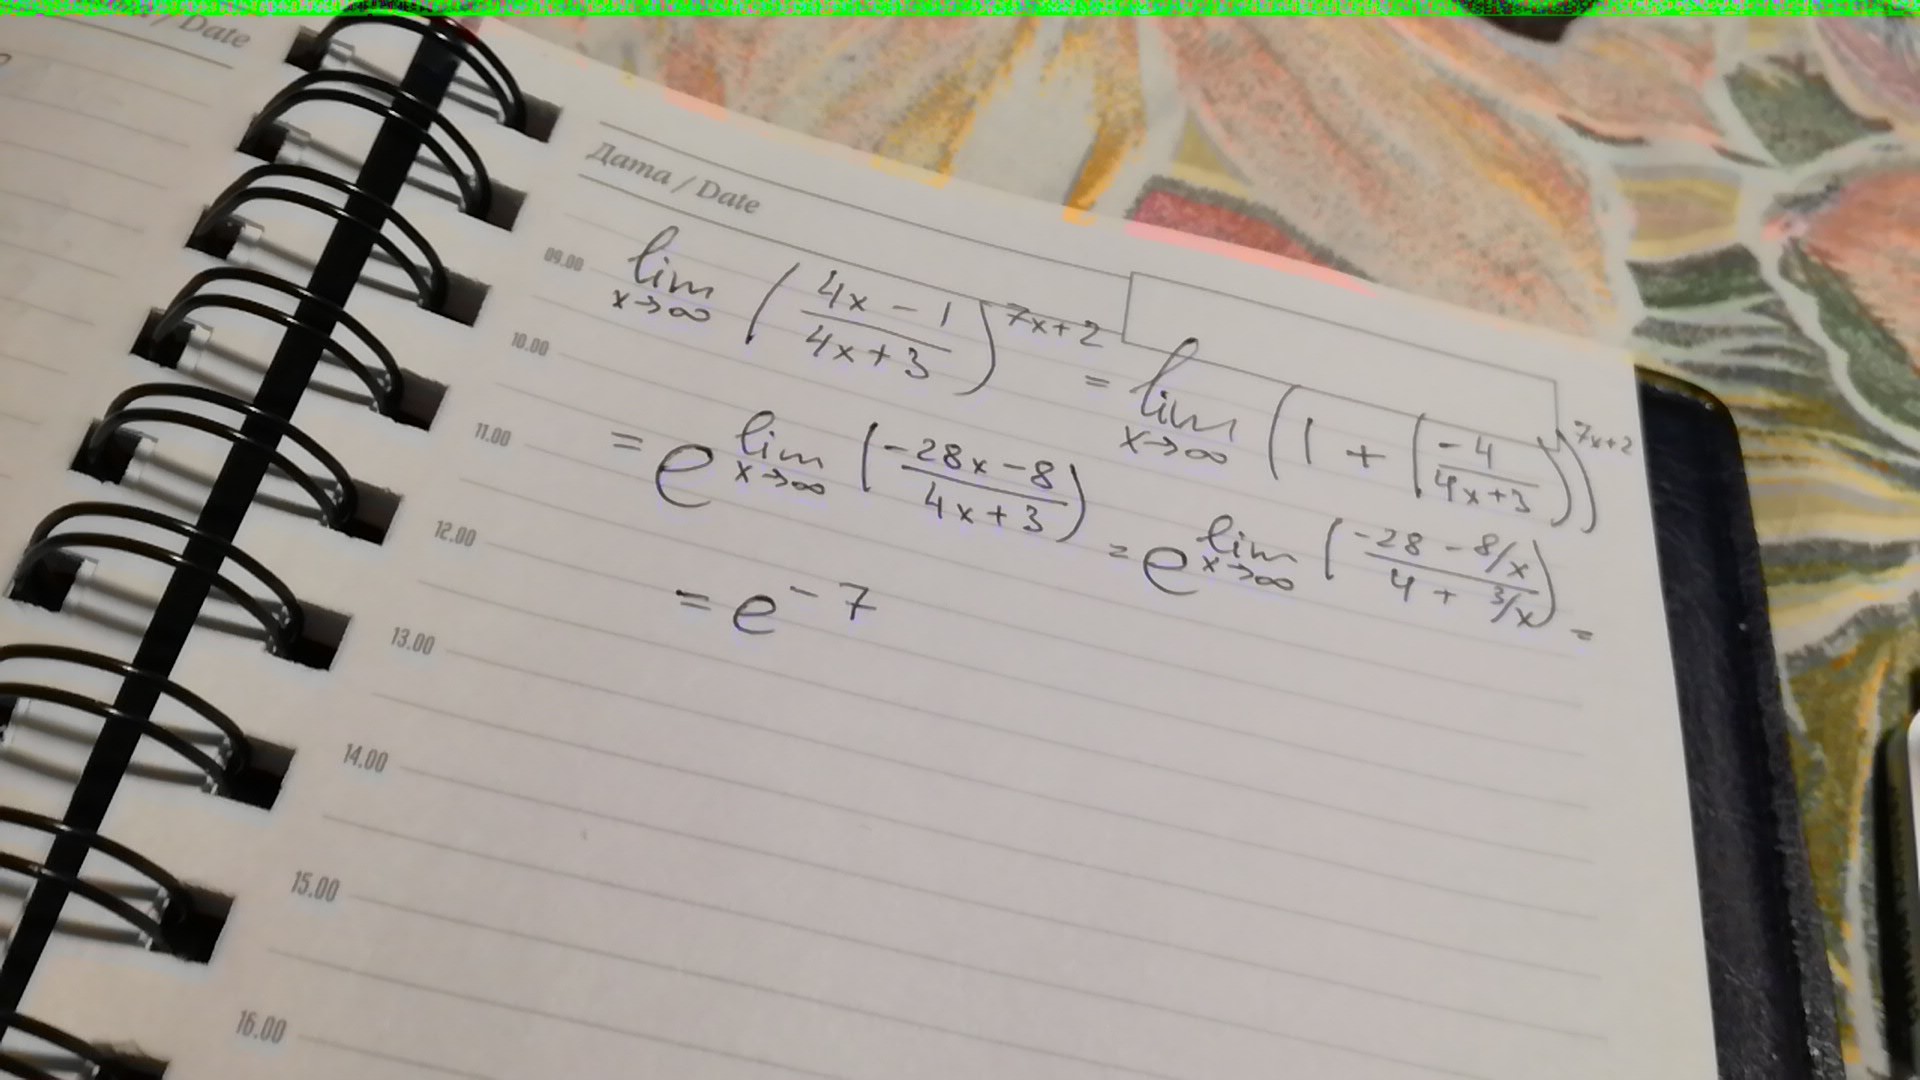 / Date
Дата / Date
09.00
lim x→∞ ( (4x - 1)/(4x + 3) )^(7x+2) = lim x→∞ ( 1 + ( (-4)/(4x+3) ) )^(7x+2)
10.00
= e^( lim x→∞ ( (-28x - 8)/(4x + 3) ) ) = e^( lim x→∞ ( (-28 - 8/x)/(4 + 3/x) ) ) =
11.00
12.00
= e^(-7)
13.00
14.00
15.00
16.00